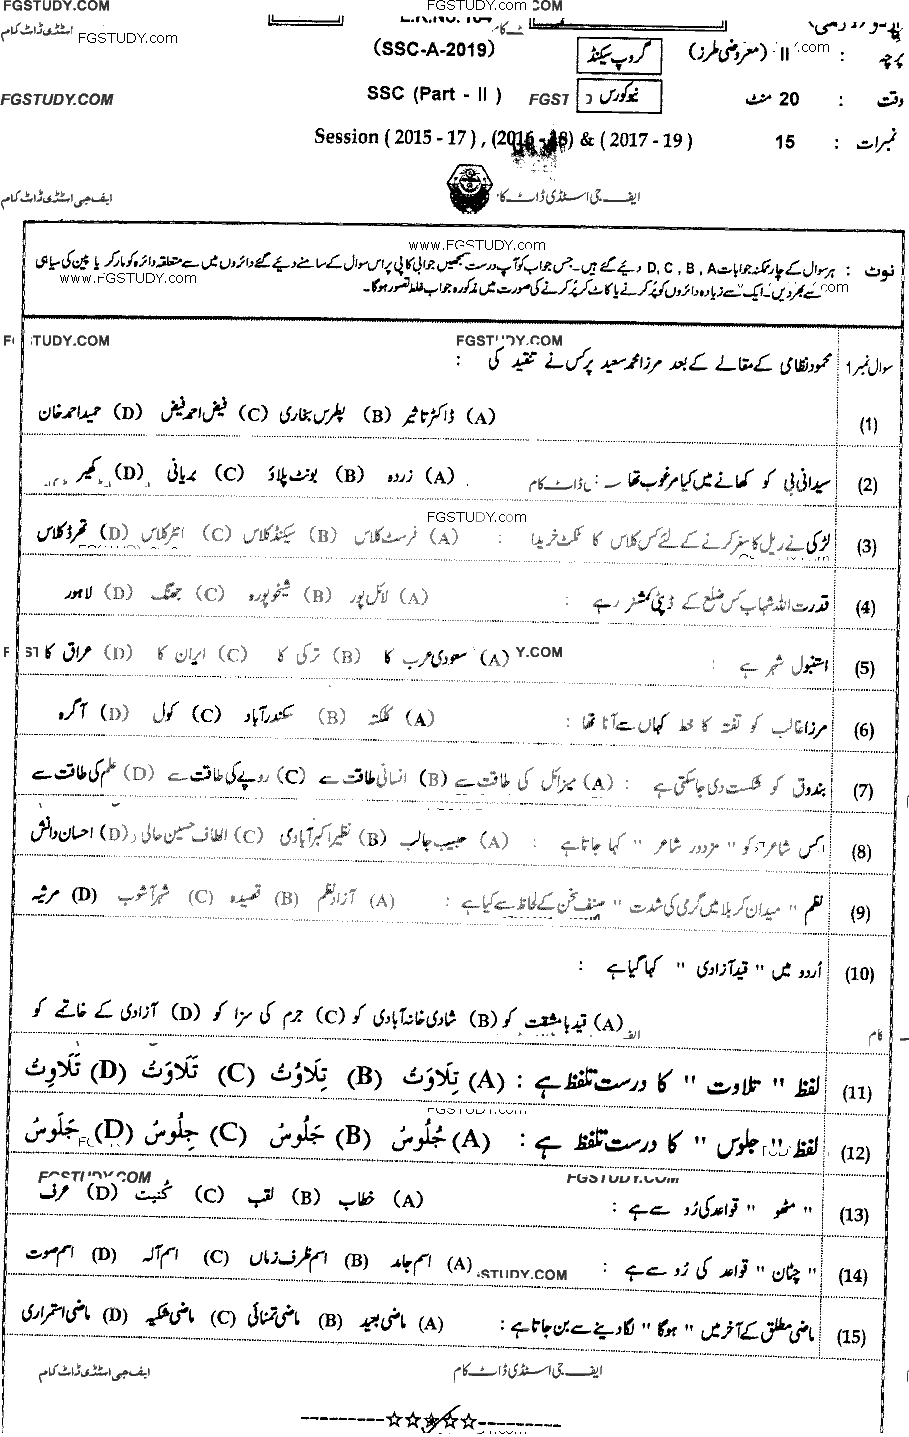 FGSTUDY.COM FGSTUDY.COM
ایف جی اسٹڈی ڈاٹ کام FGSTUDY.com
پرچہ : II (معروضی طرز) گروپ سیکنڈ (SSC-A-2019)
وقت : 20 منٹ نیوکورس SSC (Part - II ) FGSTUDY.COM
نمبرات : 15 Session ( 2015 - 17 ) , (2016 - 18) & ( 2017 - 19 )
ایف جی اسٹڈی ڈاٹ کام ایف جی اسٹڈی ڈاٹ کام
www.FGSTUDY.com
نوٹ : ہر سوال کے چار ممکنہ جوابات D, C, B, A دیئے گئے ہیں۔ جس جواب کو آپ درست سمجھیں جوابی کاپی پر اس سوال کے سامنے دیئے گئے دائروں میں سے متعلقہ دائرہ کو مارکر یا پین کی سیاہی
سے بھر دیں۔ ایک سے زیادہ دائروں کو پُر کرنے یا کاٹ کر پُر کرنے کی صورت میں مذکورہ جواب غلط تصور ہوگا۔
www.FGSTUDY.com
FGSTUDY.COM
سوال نمبر 1 محمود نظامی کے مقالے کے بعد مرزا محمد سعید پر کس نے تنقید کی :
(1) (A) ڈاکٹر تاثیر (B) پطرس بخاری (C) فیض احمد فیض (D) حمید احمد خان
(2) سیدانی بی کو کھانے میں کیا مرغوب تھا : (A) زردہ (B) بونٹ پلاؤ (C) بریانی (D) کھیر
FGSTUDY.com
(3) لڑکی نے ریل کا سفر کرنے کے لئے کس کلاس کا ٹکٹ خریدا : (A) فرسٹ کلاس (B) سیکنڈ کلاس (C) انٹر کلاس (D) تھرڈ کلاس
(4) قدرت اللہ شہاب کس ضلع کے ڈپٹی کمشنر رہے : (A) لائل پور (B) شیخوپورہ (C) جھنگ (D) لاہور
(5) استنبول شہر ہے : (A) سعودی عرب کا (B) ترکی کا (C) ایران کا (D) عراق کا
(6) مرزا غالب کو تفتہ کا خط کہاں سے آنا تھا : (A) کلکتہ (B) سکندرآباد (C) کول (D) آگرہ
(7) بندوق کو شکست دی جاسکتی ہے : (A) میزائل کی طاقت سے (B) انسانی طاقت سے (C) روپے کی طاقت سے (D) علم کی طاقت سے
(8) کس شاعر کو " مزدور شاعر " کہا جاتا ہے : (A) حبیب جالب (B) نظیر اکبر آبادی (C) الطاف حسین حالی (D) احسان دانش
(9) نظم " میدان کربلا میں گرمی کی شدت " صنف سخن کے لحاظ سے کیا ہے : (A) آزاد نظم (B) قصیدہ (C) شہر آشوب (D) مرثیہ
(10) اُردو میں " قید آزادی " کہا گیا ہے :
(A) قید بامشقت کو (B) شادی خانہ آبادی کو (C) جرم کی سزا کو (D) آزادی کے خاتمے کو
(11) لفظ " تلاوت " کا درست تلفظ ہے : (A) تِلَاوَتْ (B) تِلَاوُتْ (C) تَلَاوَتْ (D) تَلَاوِتْ
(12) لفظ " جلوس " کا درست تلفظ ہے : (A) جُلُوسْ (B) جَلُوسْ (C) جِلُوسْ (D) جَلَوسْ
FGSTUDY.COM FGSTUDY.COM
(13) " مٹھو " قواعد کی رُو سے ہے : (A) خطاب (B) لقب (C) کُنیت (D) عرف
(14) " چٹان " قواعد کی رُو سے ہے : (A) اسم جامد (B) اسم ظرف زماں (C) اسم آلہ (D) اسم صوت
(15) ماضی مطلق کے آخر میں " ہوگا " لگا دینے سے بن جاتا ہے : (A) ماضی بعید (B) ماضی تمنائی (C) ماضی شکیہ (D) ماضی استمراری
ایف جی اسٹڈی ڈاٹ کام ایف جی اسٹڈی ڈاٹ کام